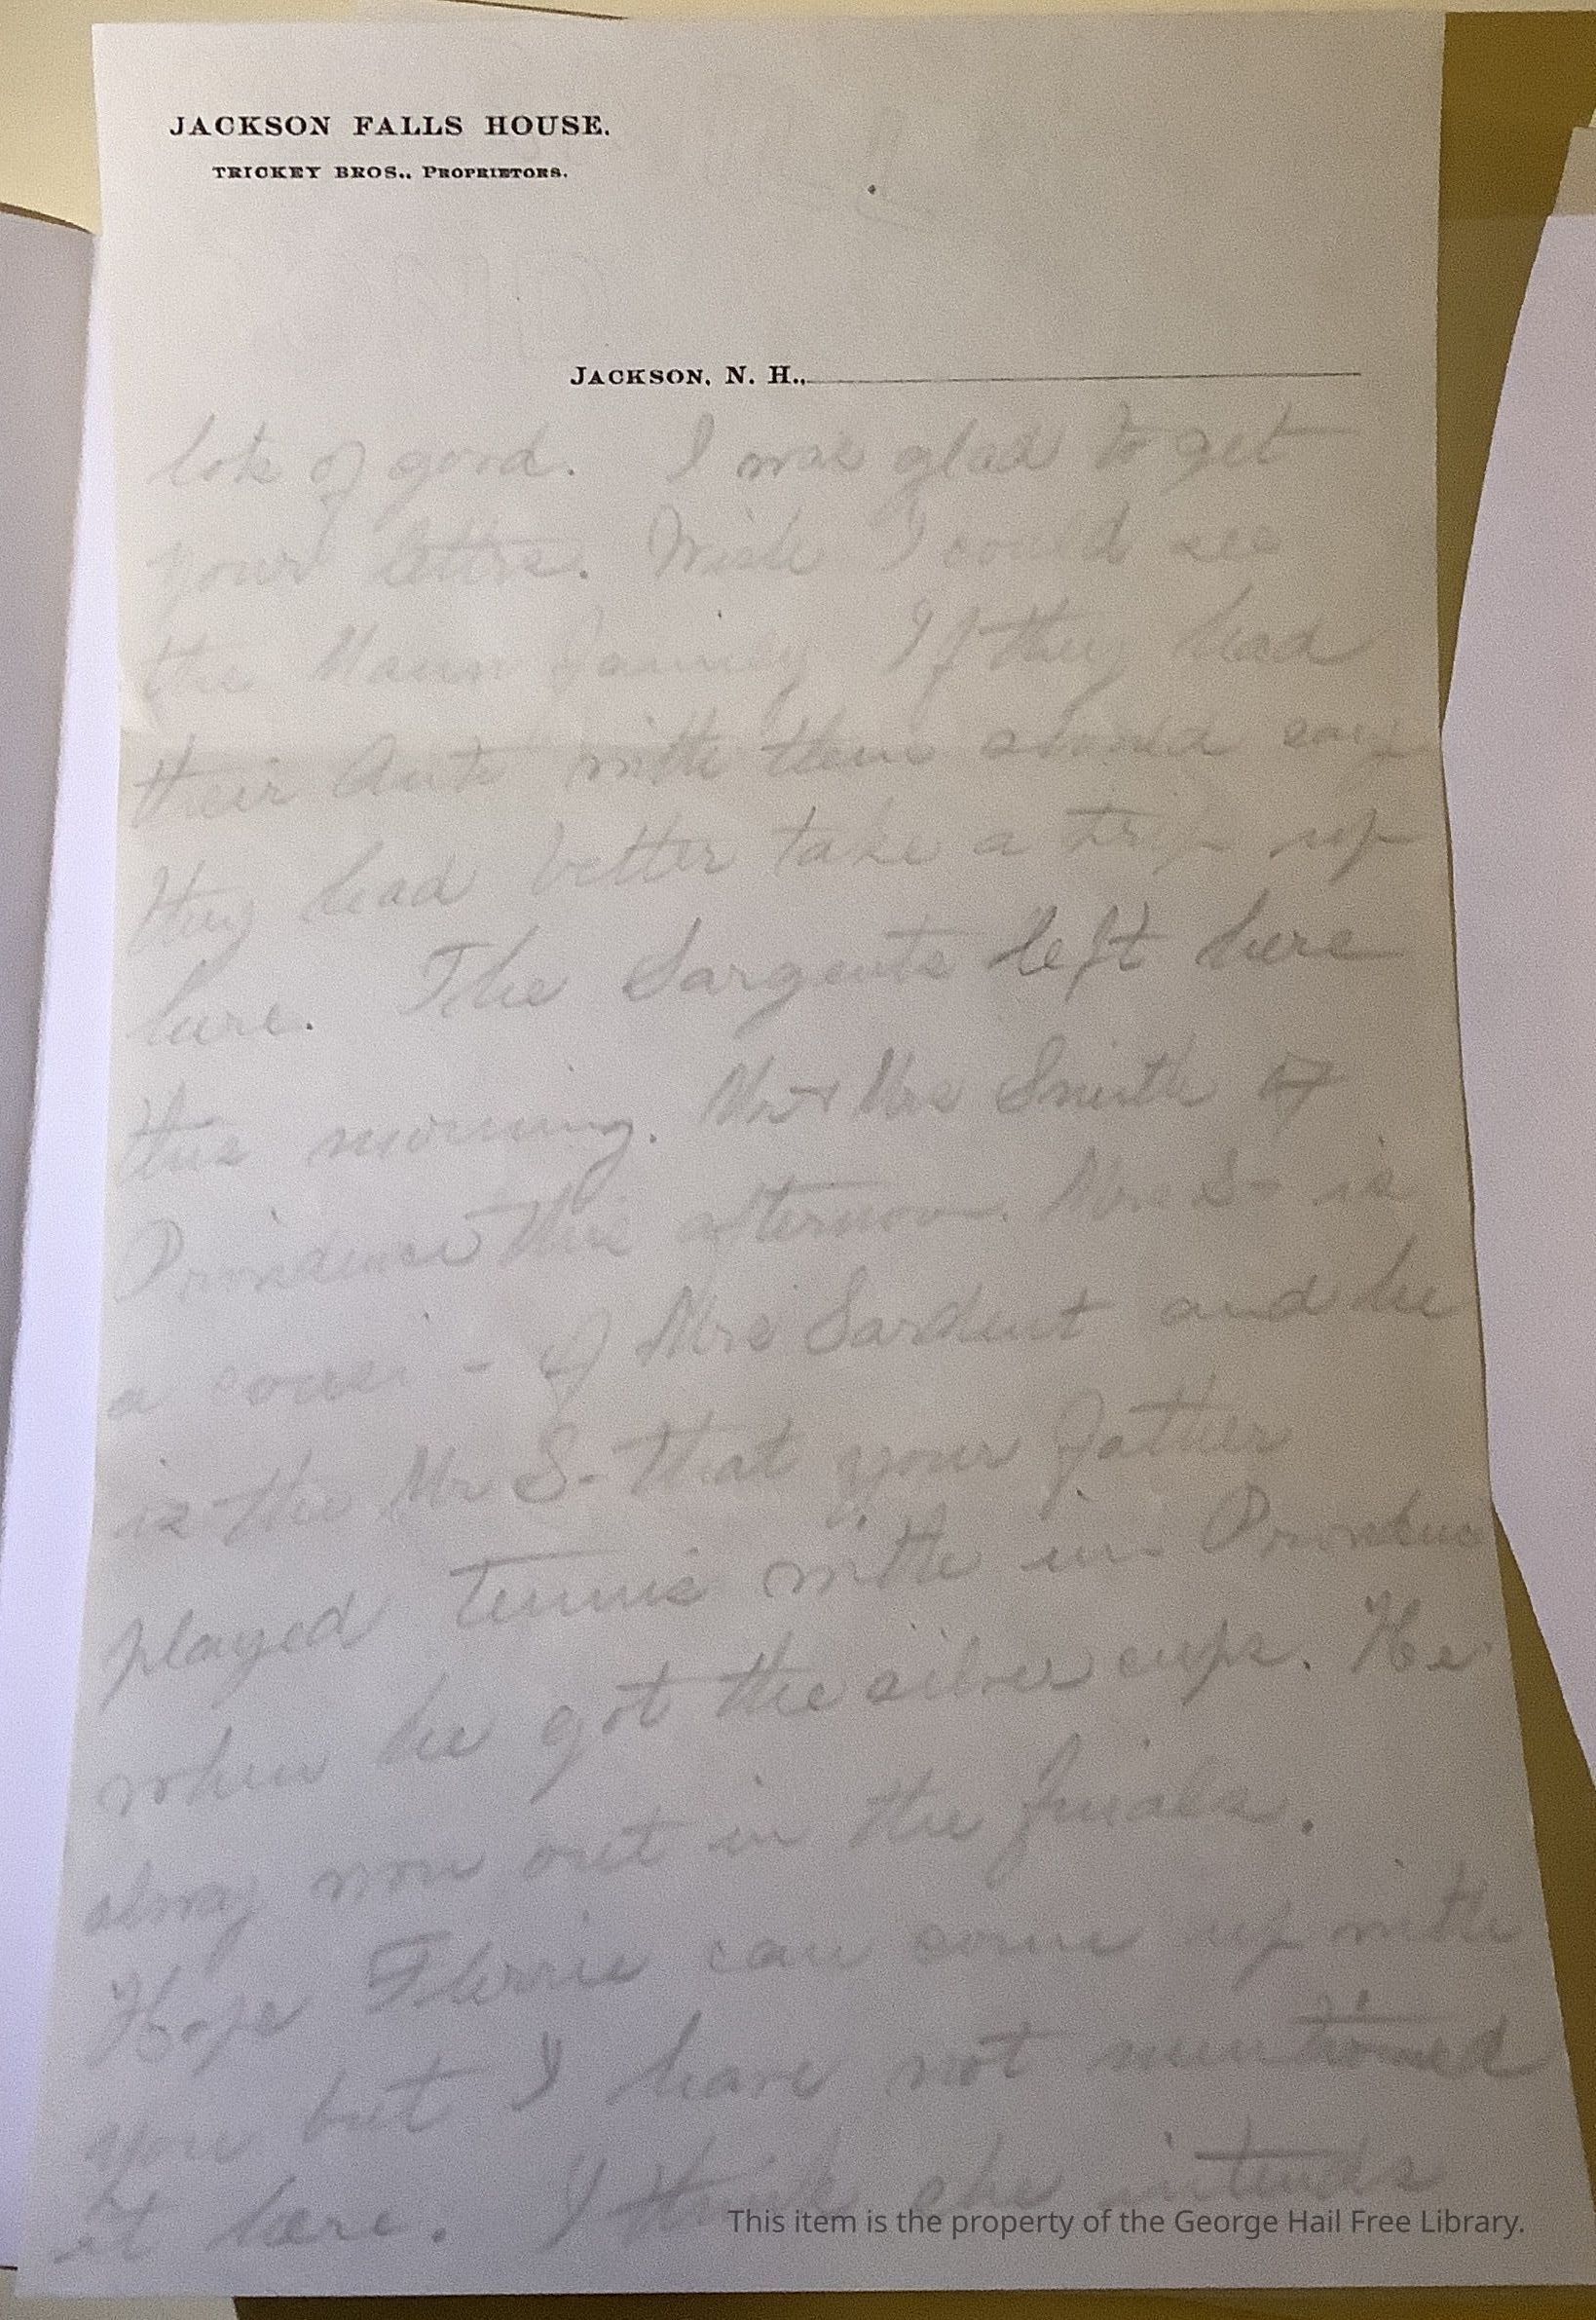 JACKSON FALLS HOUSE.
TRICKEY BROS., PROPRIETORS.
JACKSON, N. H.,
lots of good. I was glad to get
your letters. Wish I could see
the Mann family If they had
their Aunts with them should say
they had better take a trip up
here. The Sargents left here
this morning. Mr + Mrs Smith of
Providence this afternoon. Mrs S- is
a cousin of Mrs Sardent and he
is the Mr S- that your father
played tennis with in Providence
when he got the silver cups. He
alway won out in the finals.
Hope Florrie can come up with
you but I have not mentioned
it here. I think she intends
This item is the property of the George Hail Free Library.